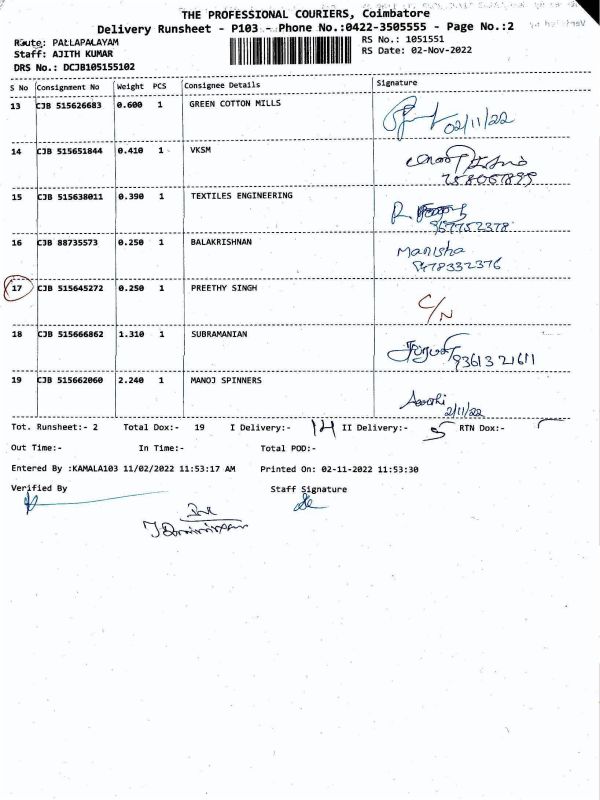 THE PROFESSIONAL COURIERS, Coimbatore
Delivery Runsheet - P103 - Phone No.:0422-3505555 - Page No.:2
Route: PALLAPALAYAM
RS No.: 1051551
Staff: AJITH KUMAR
RS Date: 02-Nov-2022
DRS No.: DCJB105155102
S No Consignment No Weight PCS Consignee Details Signature
13 CJB 515626683 0.600 1 GREEN COTTON MILLS
02/11/22
14 CJB 515651844 0.410 1 VKSM
15 CJB 515638011 0.390 1 TEXTILES ENGINEERING
16 CJB 88735573 0.250 1 BALAKRISHNAN Manisha
17 CJB 515645272 0.250 1 PREETHY SINGH
C/N
18 CJB 515666862 1.310 1 SUBRAMANIAN
93613 21611
19 CJB 515662060 2.240 1 MANOJ SPINNERS
2/11/22
Tot. Runsheet:- 2 Total Dox:- 19 I Delivery:- 14 II Delivery:- 5 RTN Dox:-
Out Time:- In Time:- Total POD:-
Entered By :KAMALA103 11/02/2022 11:53:17 AM Printed On: 02-11-2022 11:53:30
Verified By Staff Signature